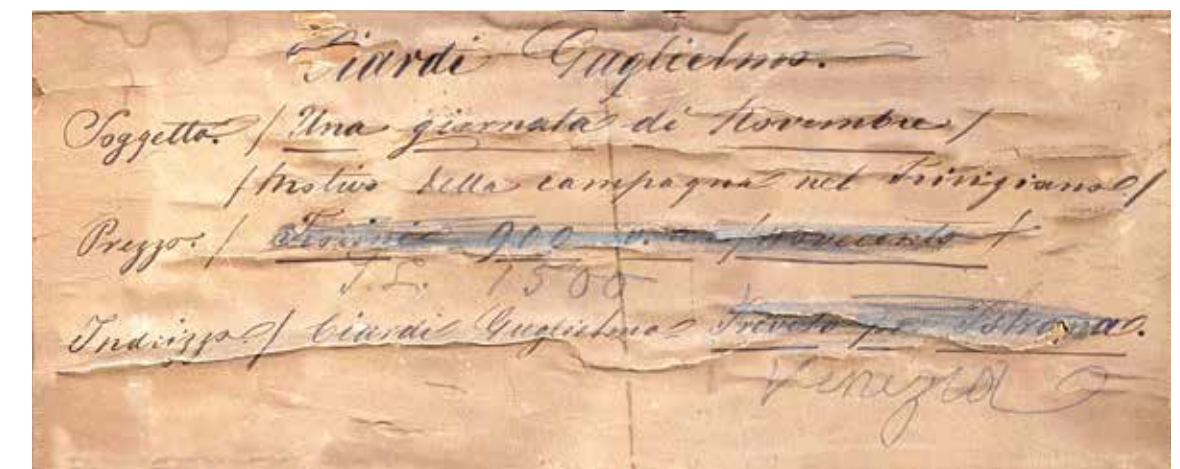 Ciardi Guglielmo.
Soggetto. / Una giornata di Novembre /
/ Motivo della campagna nel Trivigiano /
Prezzo. / Fiorini 900 /novecento /
1500
Indrizzo. / Ciardi Guglielmo Treviso per Istrana.
Venezia